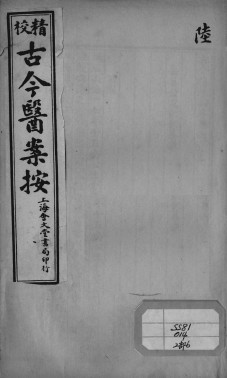 精校
古今醫案按
上海會文堂書局印行
陸
5581
014